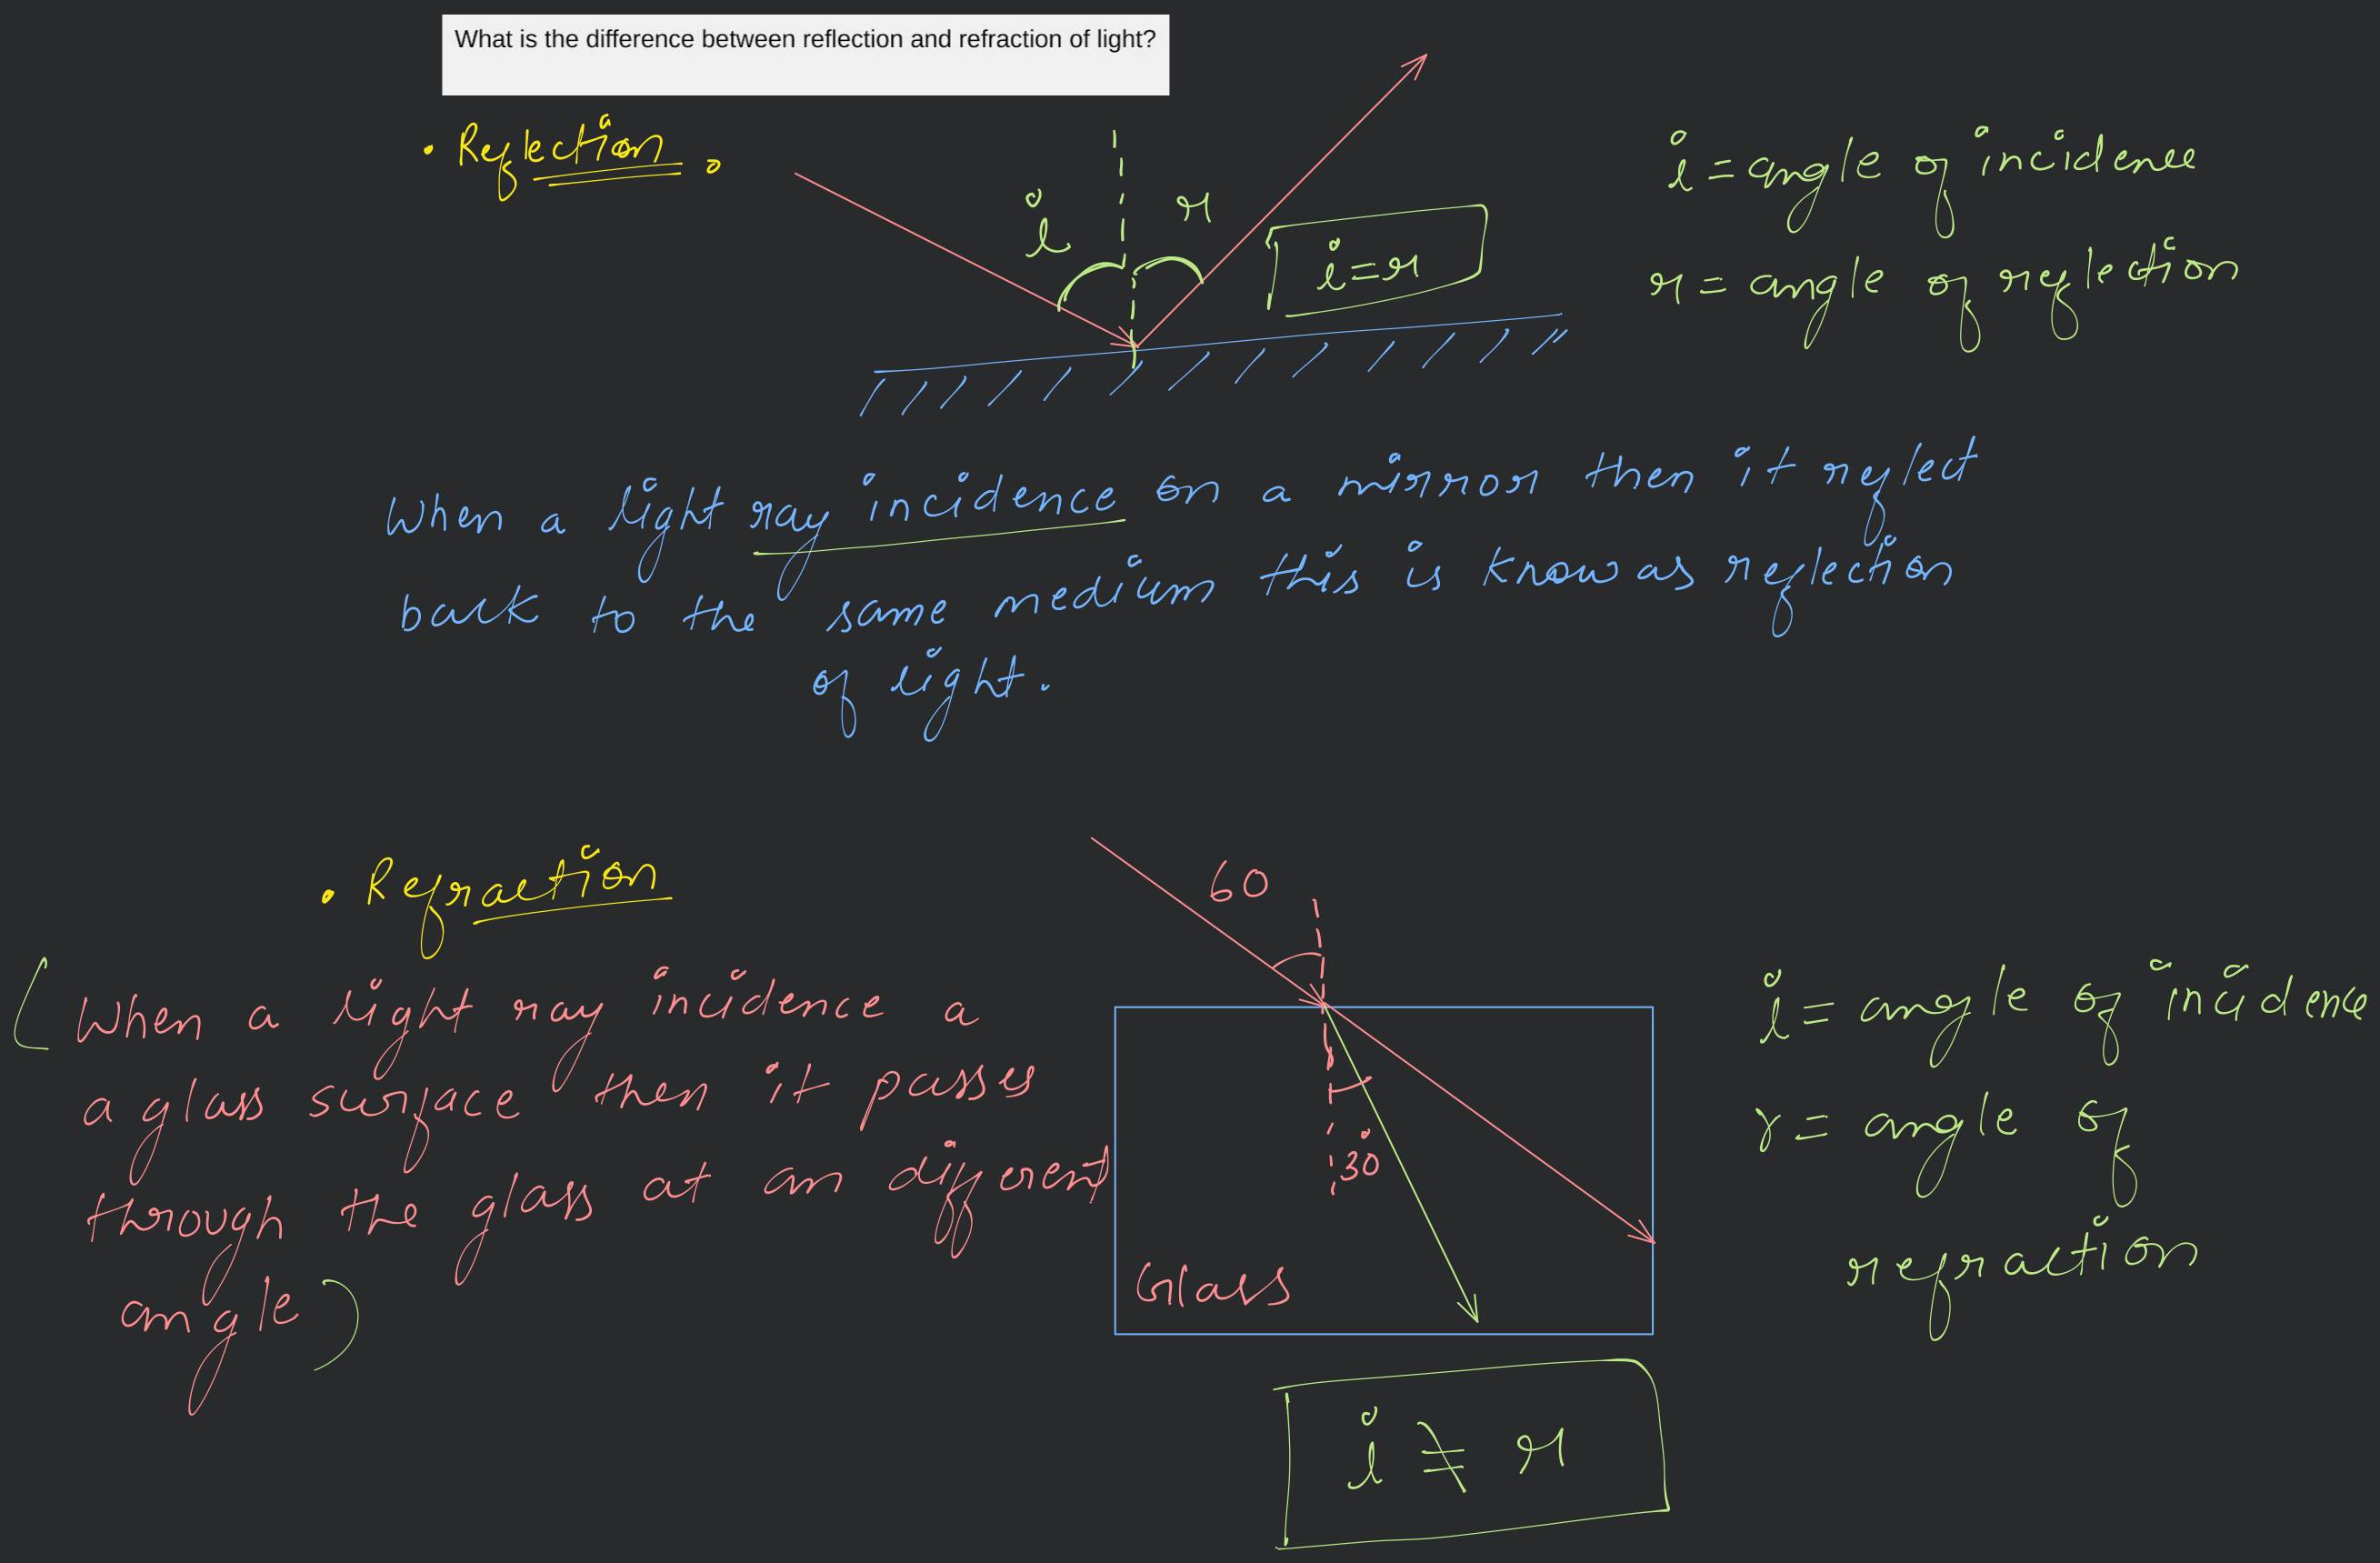 What is the difference between reflection and refraction of light?
• Reflection
i
r
i = r
i = angle of incidence
r = angle of reflection
When a light ray incidence on a mirror then it reflect
back to the same medium this is know as reflection
of light.
• Refraction
(When a light ray incidence a
a glass surface then it passes
through the glass at an different
angle)
60
30
Glass
i = angle of incidence
r = angle of
refraction
i ≠ r